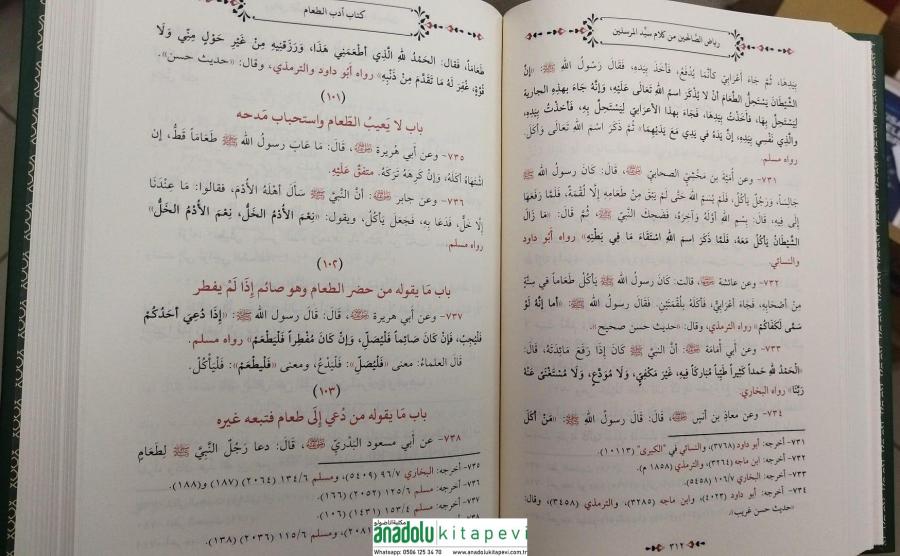 رياض الصالحين من كلام سيد المرسلين
بِيَدِهَا، ثُمَّ جَاءَ أَعْرَابِيٌّ كَأَنَّمَا يُدْفَعُ، فَأَخَذَ بِيَدِهِ، فَقَالَ رَسُولُ اللهِ ﷺ: «إِنَّ
الشَّيْطَانَ يَسْتَحِلُّ الطَّعَامَ أَنْ لَا يُذْكَرَ اسمُ اللهِ تَعَالَى عَلَيْهِ، وَإِنَّهُ جَاءَ بهذِهِ الجارِيةِ
لِيَسْتَحِلَّ بِها، فَأَخَذْتُ بِيَدِهَا، فَجَاءَ بهذا الأعرَابيِّ لِيَسْتَحِلَّ بِهِ، فَأَخَذْتُ بِيَدِهِ،
والَّذِي نَفْسِي بِيَدِهِ، إنَّ يَدَهُ في يَدِي مَعَ يَدَيْهِمَا» ثُمَّ ذَكَرَ اسْمَ اللهِ تَعَالَى وَأَكَلَ.
رواه مسلم.
٧٣١- وعن أُمَيَّةَ بن مَخْشِيٍّ الصحابيِّ ﷺ، قَالَ: كَانَ رَسُولُ اللهِ ﷺ
جَالِساً، وَرَجُلٌ يَأْكُلُ، فَلَمْ يُسَمِّ اللهَ حَتَّى لَمْ يَبْقَ مِنْ طَعَامِهِ إِلَّا لُقْمَةٌ، فَلَمَّا رَفَعَهَا
إِلَى فِيهِ، قَالَ: بِسْمِ اللهِ أَوَّلَهُ وَآخِرَهُ، فَضَحِكَ النَّبِيُّ ﷺ، ثُمَّ قَالَ: «مَا زَالَ
الشَّيْطَانُ يَأْكُلُ مَعَهُ، فَلَمَّا ذَكَرَ اسمَ اللهِ اسْتَقَاءَ مَا فِي بَطْنِهِ» رواه أَبُو داود
والنسائي.
٧٣٢- وعن عائشةَ، قالت: كَانَ رَسُولُ اللهِ ﷺ يَأْكُلُ طَعَاماً في سِتَّةٍ
مِنْ أَصْحَابِهِ، فَجَاءَ أَعْرَابِيٌّ، فَأَكَلَهُ بِلُقْمَتَيْنِ. فَقَالَ رسولُ اللهِ ﷺ: «أما إنَّهُ لَوْ
سَمَّى لَكَفَاكُمْ» رواه الترمذي، وقال: «حديث حسن صحيح».
٧٣٣- وعن أَبي أُمَامَةَ: أنَّ النَّبِيَّ ﷺ كَانَ إِذَا رَفَعَ مَائِدَتَهُ، قَالَ:
«الْحَمْدُ للهِ حَمداً كَثِيراً طَيِّباً مُبَارَكاً فِيهِ، غَيْرَ مَكْفِيٍّ، وَلَا مُوَدَّعٍ، وَلَا مُسْتَغْنًى عَنْهُ
رَبَّنَا» رواه البخاري.
٧٣٤- وعن معاذِ بن أنسٍ، قَالَ: قَالَ رَسُولُ اللهِ ﷺ: «مَنْ أَكَلَ
٧٣١- أخرجه: أبو داود (٣٧٦٨)، والنسائي في "الكبرى" (١٠١١٣).
٧٣٢- أخرجه: ابن ماجه (٣٢٦٤)، والترمذي (١٨٥٨ م).
٧٣٣- أخرجه: البخاري ١٠٦/٧ (٥٤٥٨).
٧٣٤- أخرجه: أبو داود (٤٠٢٣)، وابن ماجه (٣٢٨٥)، والترمذي (٣٤٥٨)، وقال:
«حديث حسن غريب».
٣١٢
كتاب أدب الطعام
طَعَاماً، فَقال: الحَمْدُ للهِ الَّذِي أَطْعَمَنِي هَذَا، وَرَزَقَنِيهِ مِنْ غَيْرِ حَوْلٍ مِنِّي وَلَا
قُوَّةٍ، غُفِرَ لَهُ مَا تَقَدَّمَ مِنْ ذَنْبِهِ» رواه أَبُو داود والترمذي، وقال: «حديث حسن».
(١٠١)
باب لا يَعيبُ الطّعام واستحباب مَدحه
٧٣٥- وعن أبي هريرة، قَالَ: مَا عَابَ رسولُ اللهِ ﷺ طَعَاماً قَطُّ، إن
اشْتَهَاهُ أكَلَهُ، وَإنْ كَرِهَهُ تَرَكَهُ. متفقٌ عَلَيْهِ.
٧٣٦- وعن جابر: أنَّ النَّبيَّ ﷺ سَألَ أَهْلَهُ الأُدْمَ، فقالوا: مَا عِنْدَنَا
إلَّا خَلٌّ، فَدَعَا بِهِ، فَجَعَلَ يَأكُلُ، ويقول: «نِعْمَ الأُدْمُ الخَلُّ، نِعْمَ الأُدْمُ الخَلُّ»
رواه مسلم.
(١٠٢)
باب مَا يقوله من حضر الطعام وهو صائم إِذَا لَمْ يفطر
٧٣٧- وعن أبي هريرة، قَالَ: قَالَ رسول اللهِ ﷺ: «إِذَا دُعِيَ أَحَدُكُمْ
فَلْيُجِبْ، فَإنْ كَانَ صَائِماً فَلْيُصَلِّ، وَإنْ كَانَ مُفْطِراً فَلْيَطْعَمْ» رواه مسلم.
قَالَ العلماءُ: معنى «فَلْيُصَلِّ»: فَلْيَدْعُ، ومعنى «فَلْيَطْعَمْ»: فَلْيَأْكُلْ.
(١٠٣)
باب مَا يقوله من دُعي إِلَى طعام فتبعه غيره
٧٣٨- عن أبي مسعود البَدْرِيِّ، قَالَ: دعا رَجُلٌ النَّبِيَّ ﷺ لِطَعَامٍ
٧٣٥- أخرجه: البخاري ٩٦/٧ (٥٤٠٩)، ومسلم ١٣٤/٦ (٢٠٦٤) (١٨٧) و(١٨٨).
٧٣٦- أخرجه: مسلم ١٢٥/٦ (٢٠٥٢) (١٦٦).
٧٣٧- أخرجه: مسلم ١٥٣/٤ (١٤٣١) (١٠٦).
٧٣٨- ومسلم ١١٥/٦ (٢٠٣٦) (١٣٨).
مكتبة الاناضولو
anadolukitapevi
Whatsapp: 0506 125 34 70 www.anadolukitapevi.com.tr